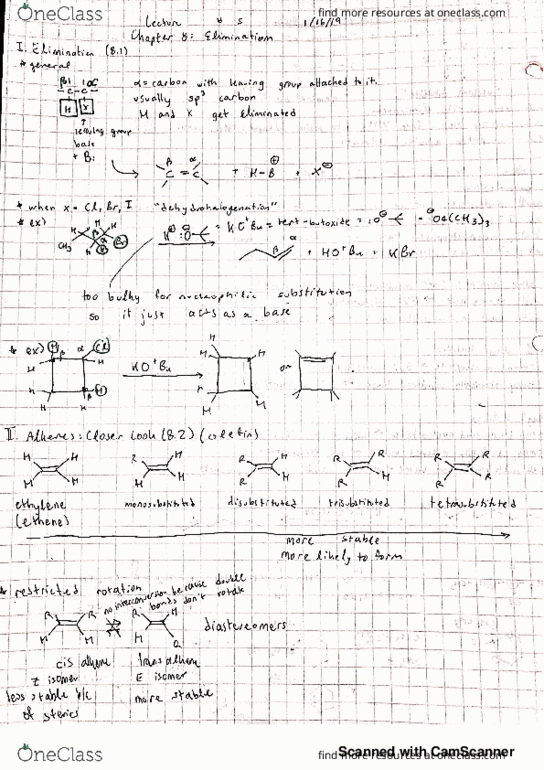 OneClass
find more resources at oneclass.com
Lecture # 5 1/16/19
Chapter 8: Elimination
I. Elimination (8.1)
* general
β α
-C-C-
H X
↑
leaving group
base
+ B:
α= carbon with leaving group attached to it.
usually sp³ carbon
H and X get eliminated
β α
C=C + H-B⊕ + X⊖
* when x = Cl, Br, I "dehydrohalogenation"
* ex)
CH₃ H H H Br
K⊕ :O⊖ = KO⁺Bu = tert-butoxide = :O⊖ = ⊖OC(CH₃)₃
+ HO⁺Bu + KBr
too bulky for nucleophilic substitution
so it just acts as a base
* ex) H β α Cl
H H H H
KO⁺Bu
H H H H or
II. Alkenes: Closer Look (8.2) (olefins)
H H H H R H H H R H R H R R R H R R R R
ethylene monosubstituted disubstituted trisubstituted tetrasubstituted
(ethene)
more stable
more likely to form
* restricted rotation
no interconversion because double
bonds don't rotate
R R H H R H H R diastereomers
cis alkene trans alkene
Z isomer E isomer
less stable b/c more stable
of sterics
OneClass
find more resources at oneclass.com
Scanned with CamScanner